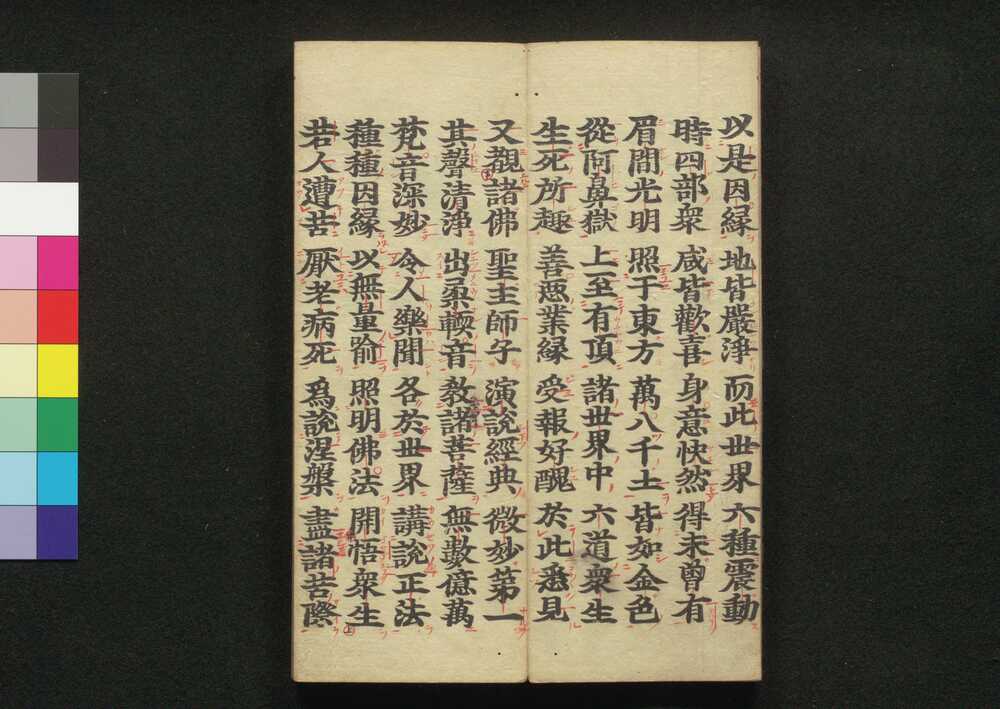 以是因縁 地皆嚴淨 而此世界 六種震動
時四部衆 咸皆歡喜 身意快然 得未曾有
眉間光明 照于東方 萬八千土 皆如金色
從阿鼻獄 上至有頂 諸世界中 六道衆生
生死所趣 善惡業縁 受報好醜 於此悉見
又覩諸佛 聖主師子 演說經典 微妙第一
其聲清淨 出柔輭音 教諸菩薩 無數億萬
梵音深妙 令人樂聞 各於世界 講說正法
種種因縁 以無量喻 照明佛法 開悟衆生
若人遭苦 厭老病死 爲說涅槃 盡諸苦際